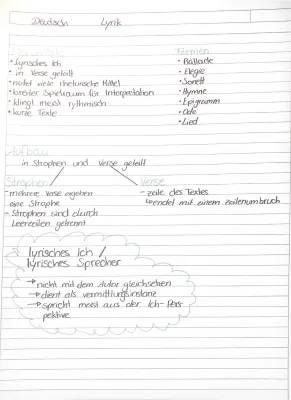 Deutsch Lyrik
Formen
• lyrisches Ich
• in Verse geteilt
• nutzt viele rhetorische Mittel
• breiter Spielraum für Interpretation
• klingt meist rythmisch
• kurze Texte
• Ballade
• Elegie
• Sonett
• Hymne
• Epigramm
• Ode
• Lied
Aufbau
in Strophen und Verse geteilt
Strophen
- mehrere Verse ergeben
eine Strophe
- Strophen sind durch
Leerzeilen getrennt
Verse
- Zeile des Textes
↳ endet mit einem Zeilenumbruch
lyrisches Ich /
lyrisches Sprecher
→ nicht mit dem Autor gleichsehen
→ dient als Vermittlungsinstanz
→ spricht meist aus der Ich-Pers
pektive